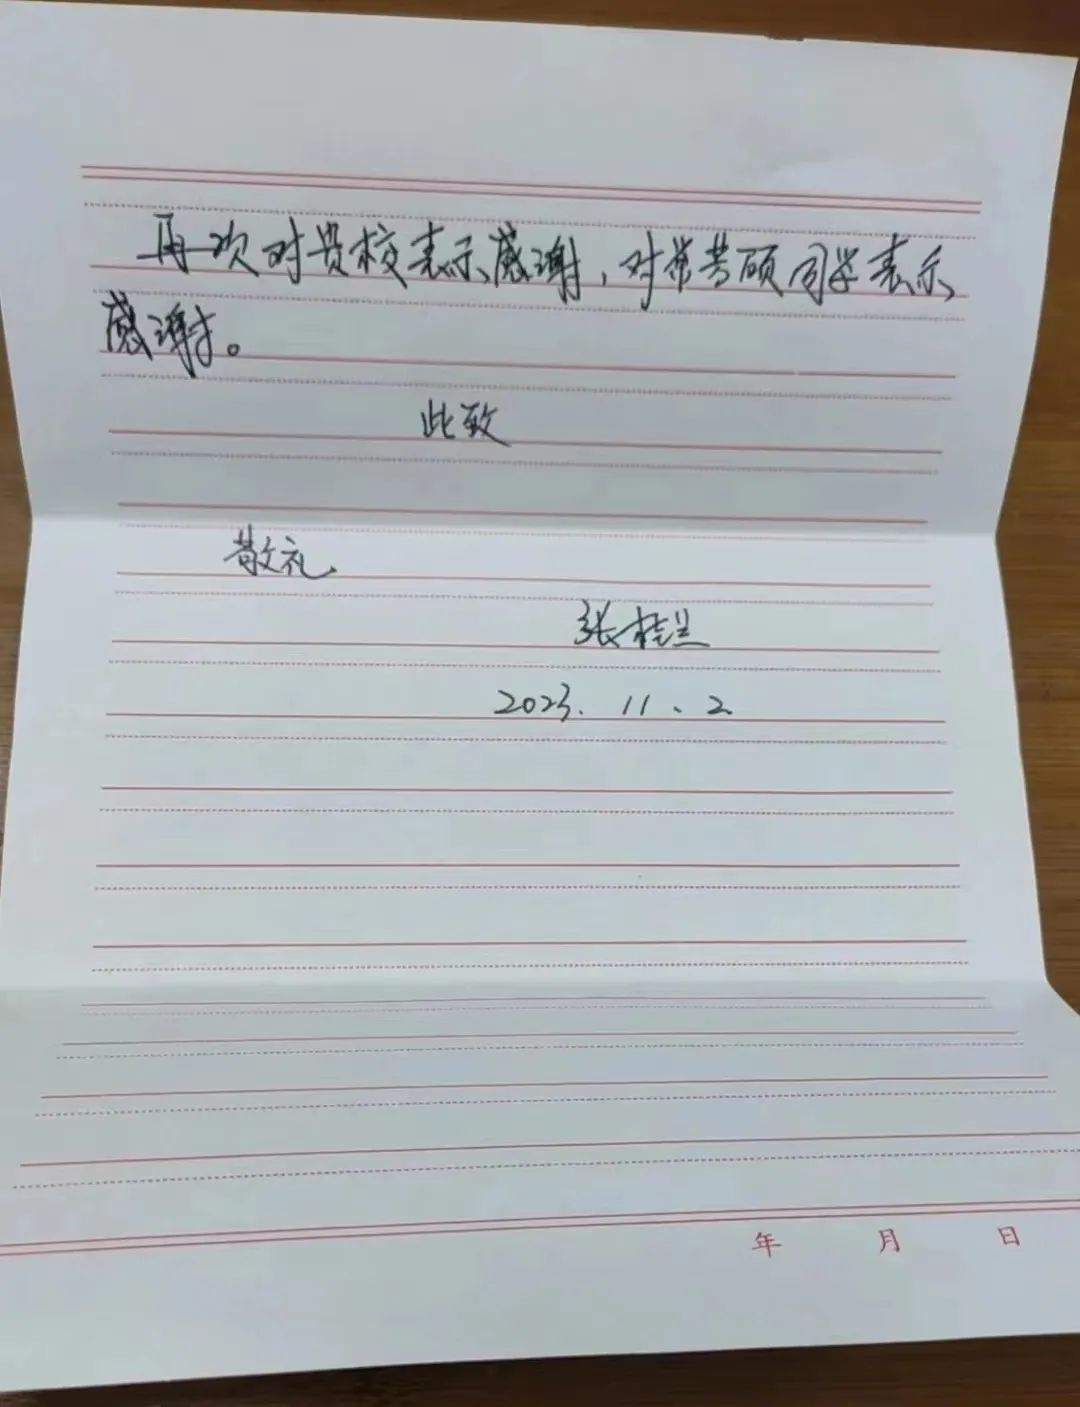 再次对贵校表示感谢,对常芸硕同学表示
感谢。
此致
敬礼
张桂兰
2023.11、2
年 月 日